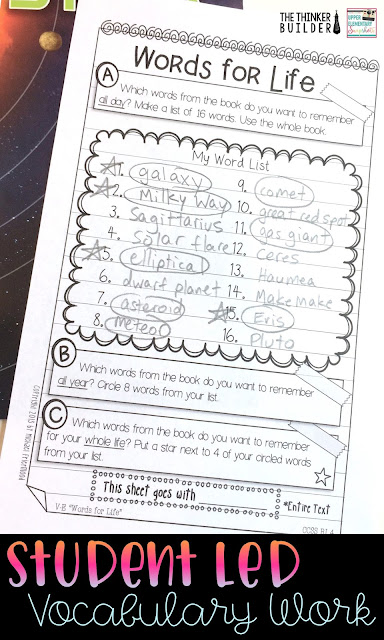 THE THINKER
BUILDER
UPPER
ELEMENTARY
Snapshots
Words for Life
A
Which words from the book do you want to remember
all day? Make a list of 16 words. Use the whole book.
My Word List
1. galaxy
2. Milky Way
3. Sagittarius
4. Solar flare
5. elliptical
6. dwarf planet
7. asteroid
8. meteor
9. comet
10. great red spot
11. gas giant
12. Ceres
13. Haumea
14. Make make
15. Eris
16. Pluto
B
Which words from the book do you want to remember
all year? Circle 8 words from your list.
C
Which words from the book do you want to remember
for your whole life? Put a star next to 4 of your circled words
from your list.
This sheet goes with
*Entire Text
V-B "Words for Life"
CCSS RI.4
Student Led
Vocabulary Work